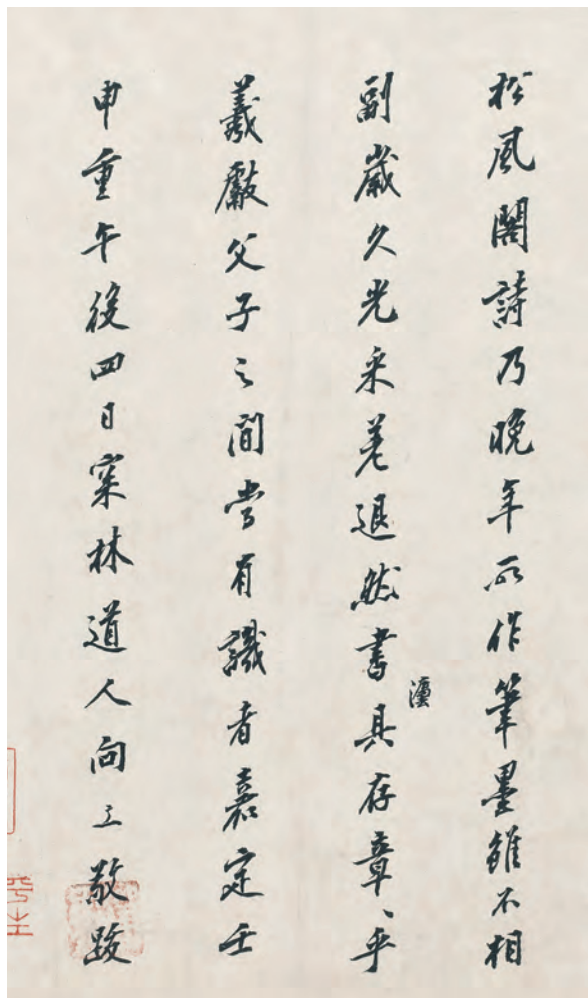 松風閣詩乃晚年所作筆墨雖不相
副歲久光采差退然書灋具存章、乎
羲獻父子之間當有識者嘉定壬
申重午後四日林道人向敬跋